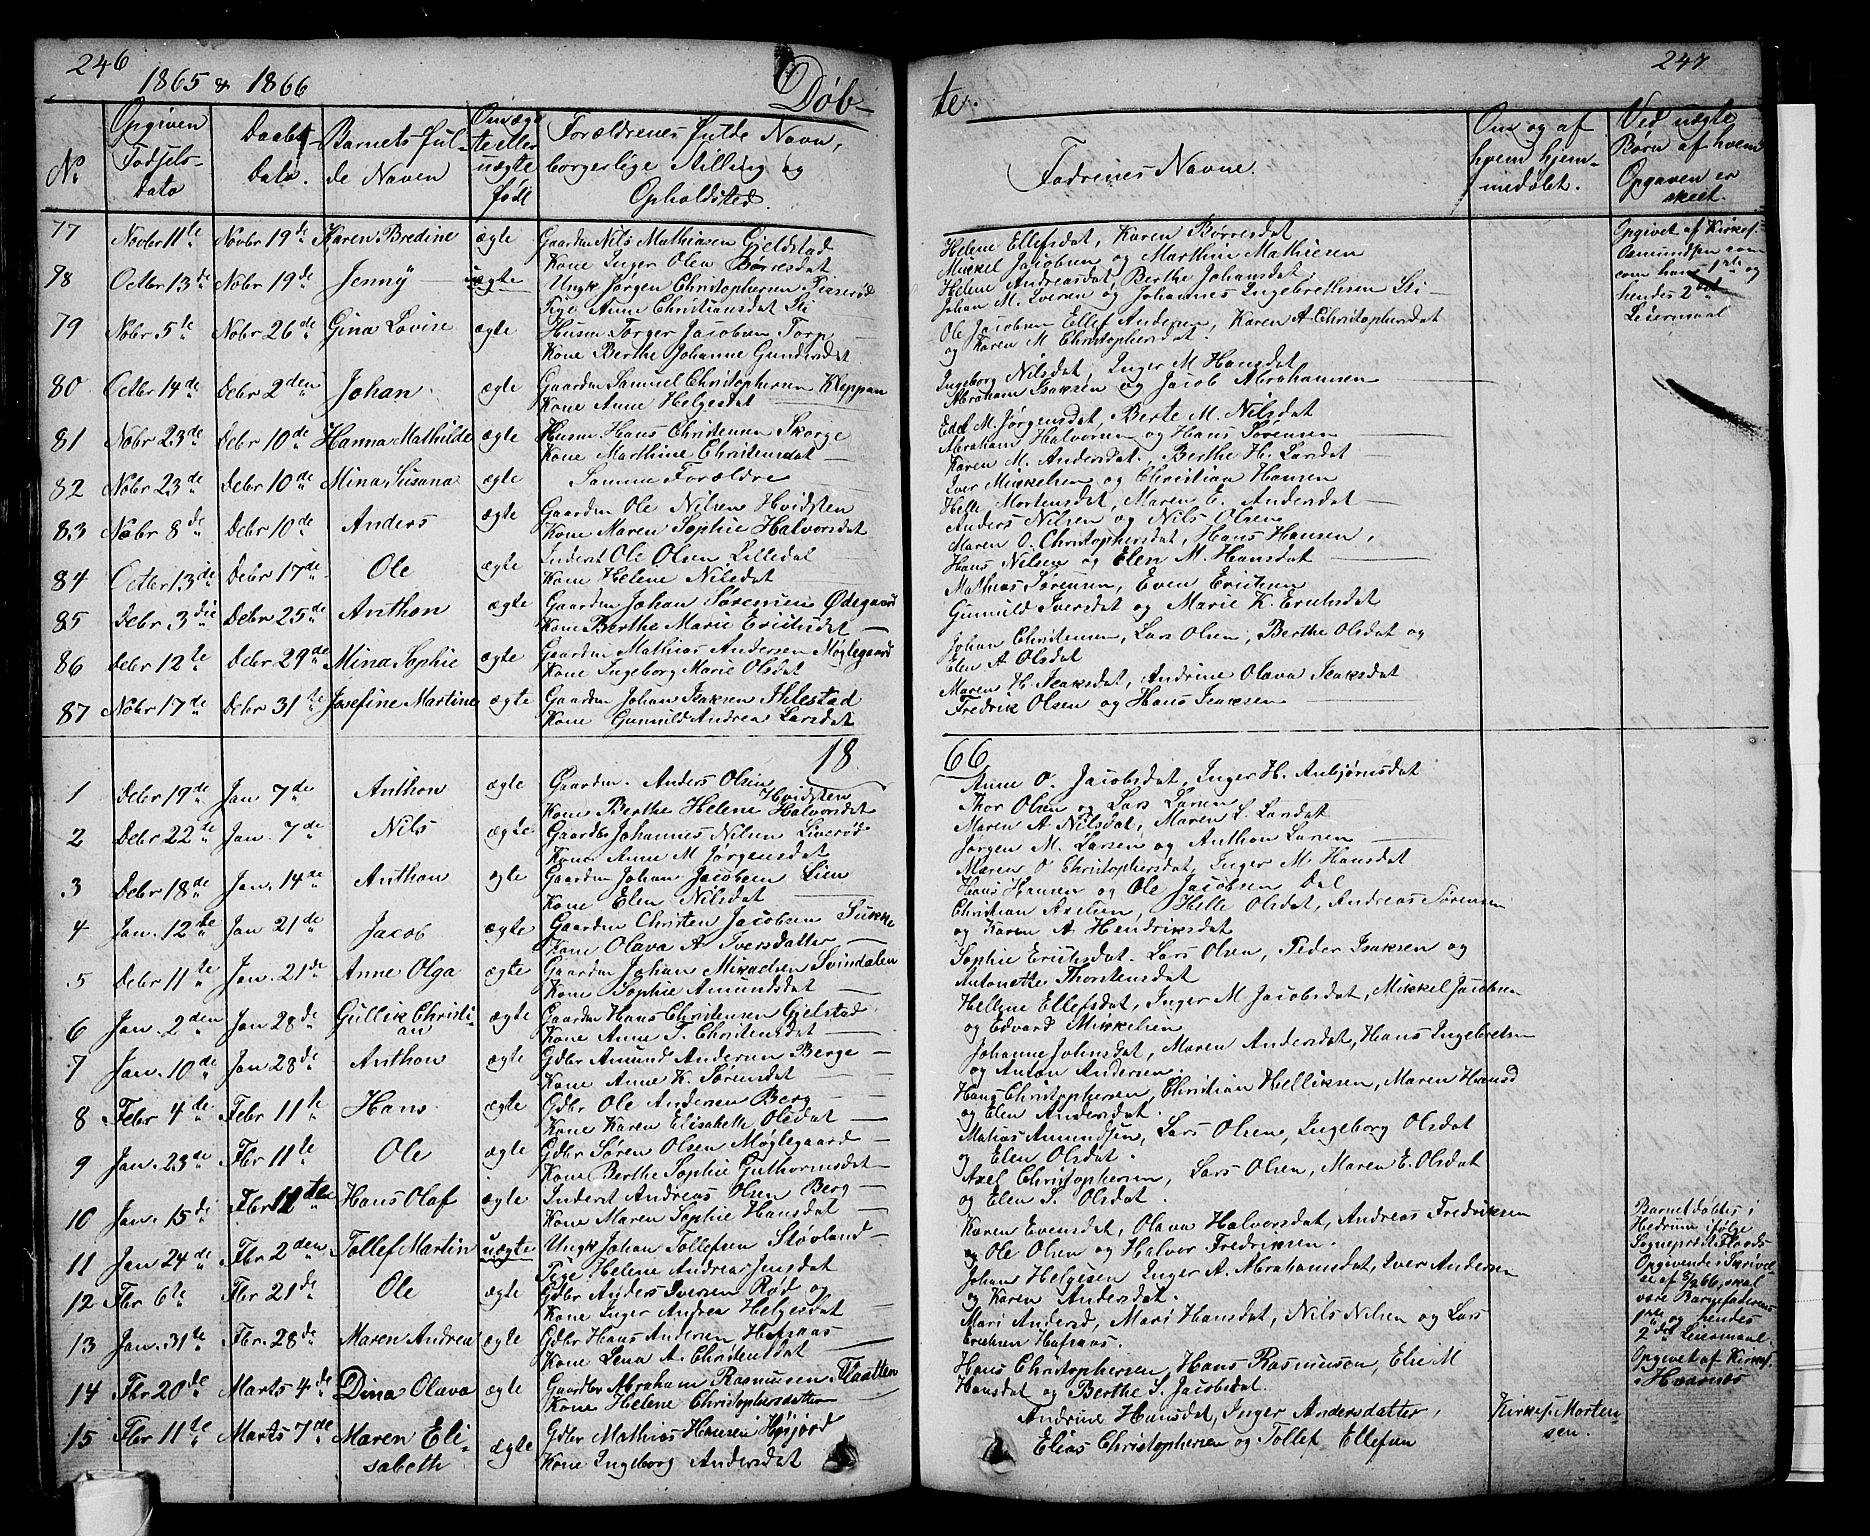 246
1865 & 1866
Døb-
No
Opgiven Fødsels- dato
Daabs Dato.
Barnets ful- de Navn
Om ægte eller uægte født
Forældrenes fulde Navn, borgerlige Stilling og Opholdsted.
77 Novbr 11te Novbr 19de Karen Bredine ægte Gaardm Nils Mathiasen Gjeldstad
Kone Inger Olea Børresdat
78 Octbr 13de Nobr 19de Jenny uægte Ungk Jørgen Christophersen
Pige Anne Christiansdat Li
79 Nobr 5te Nobr 26de Gina Lovise ægte Husm Torger Jacobsen Torp
Kone Berthe Johanne Gundersdat
80 Octbr 14de Debr 2den Johan ægte Gaardm Samuel Christophersen Kleppan
Kone Anne Helgesdat
81 Nobr 23de Debr 10de Hanna Mathilde ægte Husm. Hans Christensen Skorge
Kone Marthine Christensdat
82 Nobr 23de Debr 10de Mina Susana ægte Samme Forældre
83 Nobr 8de Debr 10de Anders ægte Gaardm Ole Nilsen Hvidsten
Kone Maren Sophie Halvorsdat
84 Octbr 13de Debr 17de Ole ægte Inderst Ole Olsen Lilledal
Kone Helene Nilsdat
85 Debr 3die Debr 25de Anthon ægte Gaardm Johan Sørensen Ødegaard
Kone Berthe Marie Eriksdat
86 Debr 12te Debr 29de Mina Sophie ægte Gaardm Mathias Andersen Møglegaard
Kone Ingeborg Marie Olsdat
87 Nobr 17de Debr 31te Josefine Martine ægte Gaardm Johan Isaksen Helestad
Kone Gunnild Andrea Larsdat
18
1 Debr 19de Jan 7de Anthon ægte Gaardm. Anders Olsen Hvidsten
Kone Berthe Helene Halvorsdat
2 Debr 22de Jan. 7de Nils ægte Gaardbr Johannes Nilsen Liverød
Kone Anne M Jørgensdat
3 Debr 18de Jan. 14de Anthon ægte Gaardm Johan Jacobsen Lien
Kone Elen Nilsdat
4 Jan. 12te Jan 21de Jacob ægte Gaardm Christen Jacobsen Sukke
Kone Olava A Iversdatter
5 Debr 11te Jan. 21de Anne Olga ægte Gaardm Johan Mikaelsen Svindalen
Kone Sophie Amundsdat
6 Jan. 2den Jan 28de Gullik Christi- an ægte Gaardm Hans Christensen Gjelstad
Kone Anne T. Christensdat
7 Jan. 10de Jan 28de Anthon ægte Gdbr Amund Andersen Berge
Kone Anne K. Sørensdat
8 Febr 4de Febr 11te Hans ægte Gdbr Ole Andersen Berg
Kone Karen Elisabeth Olsdat
9 Jan. 23de Fbr 11te Ole ægte Gdbr Søren Olsen Møglegaard
Kone Berthe Sophie Guthormsdat
10 Jan. 15de Fbr 11te Hans Olaf ægte Inderst Andreas Olsen Berg
Kone Maren Sophie Hansdat
11 Jan 24de Fbr 2den Tollef Martin uægte Ungk Johan Tollefsen Støvland
Pige Helene Andrea Jensdat
12 Fbr 6te Fbr 21de Ole ægte Gdbr Anders Iversen Rød og
Kone Inger Andrea Helgesdat
13 Jan. 31te Fbr. 28de Maren Andrea ægte Gdbr Hans Andersen Hafsaas
Kone Lena A. Christensdat
14 Fbr 20de Marts 4de Dina Olava ægte Gaardbr Abraham Rasmussen Flaatten
Kone Helene Christophersdatter
15 Fbr 11te Marts 7de Maren Eli- sabeth ægte Gdbr Mathias Hansen Høijord
Kone Ingeborg Andersdat
247
te.
Fadrenes Navne.
Om og af hvem hjem- medøbt.
Ved uægte Børn af hvem Opgaven er skeet.
Helene Ellefsdat, Karen Børresdat
Mikkel Jacobsen og Marthin Mathiesen
Helene Andreasdat, Berthe Johansdat,
Johan M. Iversen og Johannes Ingebrethsen Li
Ole Jacobsen Ellef Andersen, Karen A Christophersdat
og Karen M Christophersdat.
Ingeborg Nilsdat, Inger M Hansdat
Abraham Isaksen og Jacob Abrahamsen
Edel M. Jørgensdat, Berte M. Nilsdat
Abraham Halvorsen og Hans Sørensen
Karen M. Andersdat, Berthe H. Larsdat
Iver Mikkelsen og Christian Hansen
Helle Mortensdat, Maren E. Andersdat
Anders Nilsen og Nils Olsen
Maren O. Christophersdat, Hans Hansen,
Hans Nilsen og Elen M. Hansdat
Mathias Sørensen, Even Eriksen
Gunnild Iversdat og Marie K. Eriksdat
Johan Christensen, Lars Olsen, Berthe Olsdat og
Elen A Olsdat
Maren H. Isaksdat, Andrine Olava Isaksdat
Fredrik Olsen og Hans Isaksen
Opgivet af Kirkes. Osmundsen som
hans 1ste og hendes 2det Leiermaal
66
Anne O. Jacobsdat, Inger H. Anbjørnsdat
Thor Olsen og Lars Larsen
Maren A Nilsdat, Maren L. Larsdat
Jørgen M. Larsen og Anthon Larsen
Maren O Christophersdat, Inger M. Hansdat
Hans Hansen og Ole Jacobsen Dal
Christian Axelsen, Helle Olsdat, Andreas Sørensen
og Karen A Hendriksdat
Sophie Eriksdat. Lars Olsen, Peder Isaksen og
Antonette Thorstensdat
Hellene Ellefsdat, Inger M Jacobsdat, Mikkel Jacobsen
og Edvard Mikkelsen
Johanne Johnsdat, Maren Andersdat, Hans Ingebretsen
og Anton Andersen.
Hans Christophersen, Christian Helliksen, Maren Hansd
og Elen Andersdat.
Matias Amundsen, Lars Olsen, Ingeborg Olsdat
og Elen Olsdat.
Axel Christophersen, Lars Olsen, Maren E. Olsdat
og Elen S. Olsdat.
Karen Evensdat, Olava Halvorsdat, Andreas Fredriksen
og Ole Olsen og Halvor Fredriksen.
Johan Helgesen Inger A. Abrahamsdat, Iver Andersen
og Karen Andersdat.
Mari Andersd, Mari Hansdat, Nils Nilsen og Lars
Eriksen Hafsaas.
Hans Christophersen, Hans Rasmusson, Elie M
Hansdat og Berthe S. Jacobsdat.
Andrine Hansdat, Inger Andersdatter,
Elias Christophersen og Tollef Ellefsen
Kirkes. Morten- sen.
Barnet døbt i
Hedrum ifølge
Sogneprest Floods
Opgivende i Skrivel-
se af skal
være Barnefaderens
1ste og hendes
2det Leiermaal.
Opgivet af Kirkes.
i Hvarnes